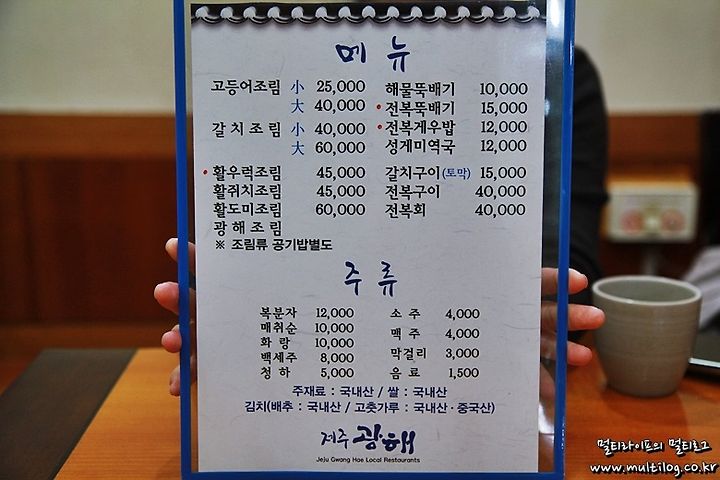 메뉴
고등어조림 小 25,000
大 40,000
갈치조림 小 40,000
大 60,000
• 활우럭조림 45,000
활쥐치조림 45,000
활도미조림 60,000
광해조림
※ 조림류 공기밥별도
해물뚝배기 10,000
• 전복뚝배기 15,000
• 전복게우밥 12,000
성게미역국 12,000
갈치구이(토막) 15,000
전복구이 40,000
전복회 40,000
주류
복분자 12,000
매취순 10,000
화랑 10,000
백세주 8,000
청하 5,000
소주 4,000
맥주 4,000
막걸리 3,000
음료 1,500
주재료 : 국내산 / 쌀 : 국내산
김치(배추 : 국내산 / 고춧가루 : 국내산 · 중국산)
제주 광해
Jeju Gwang Hae Local Restaurants
멀티라이프의 멀티로그
www.multilog.co.kr